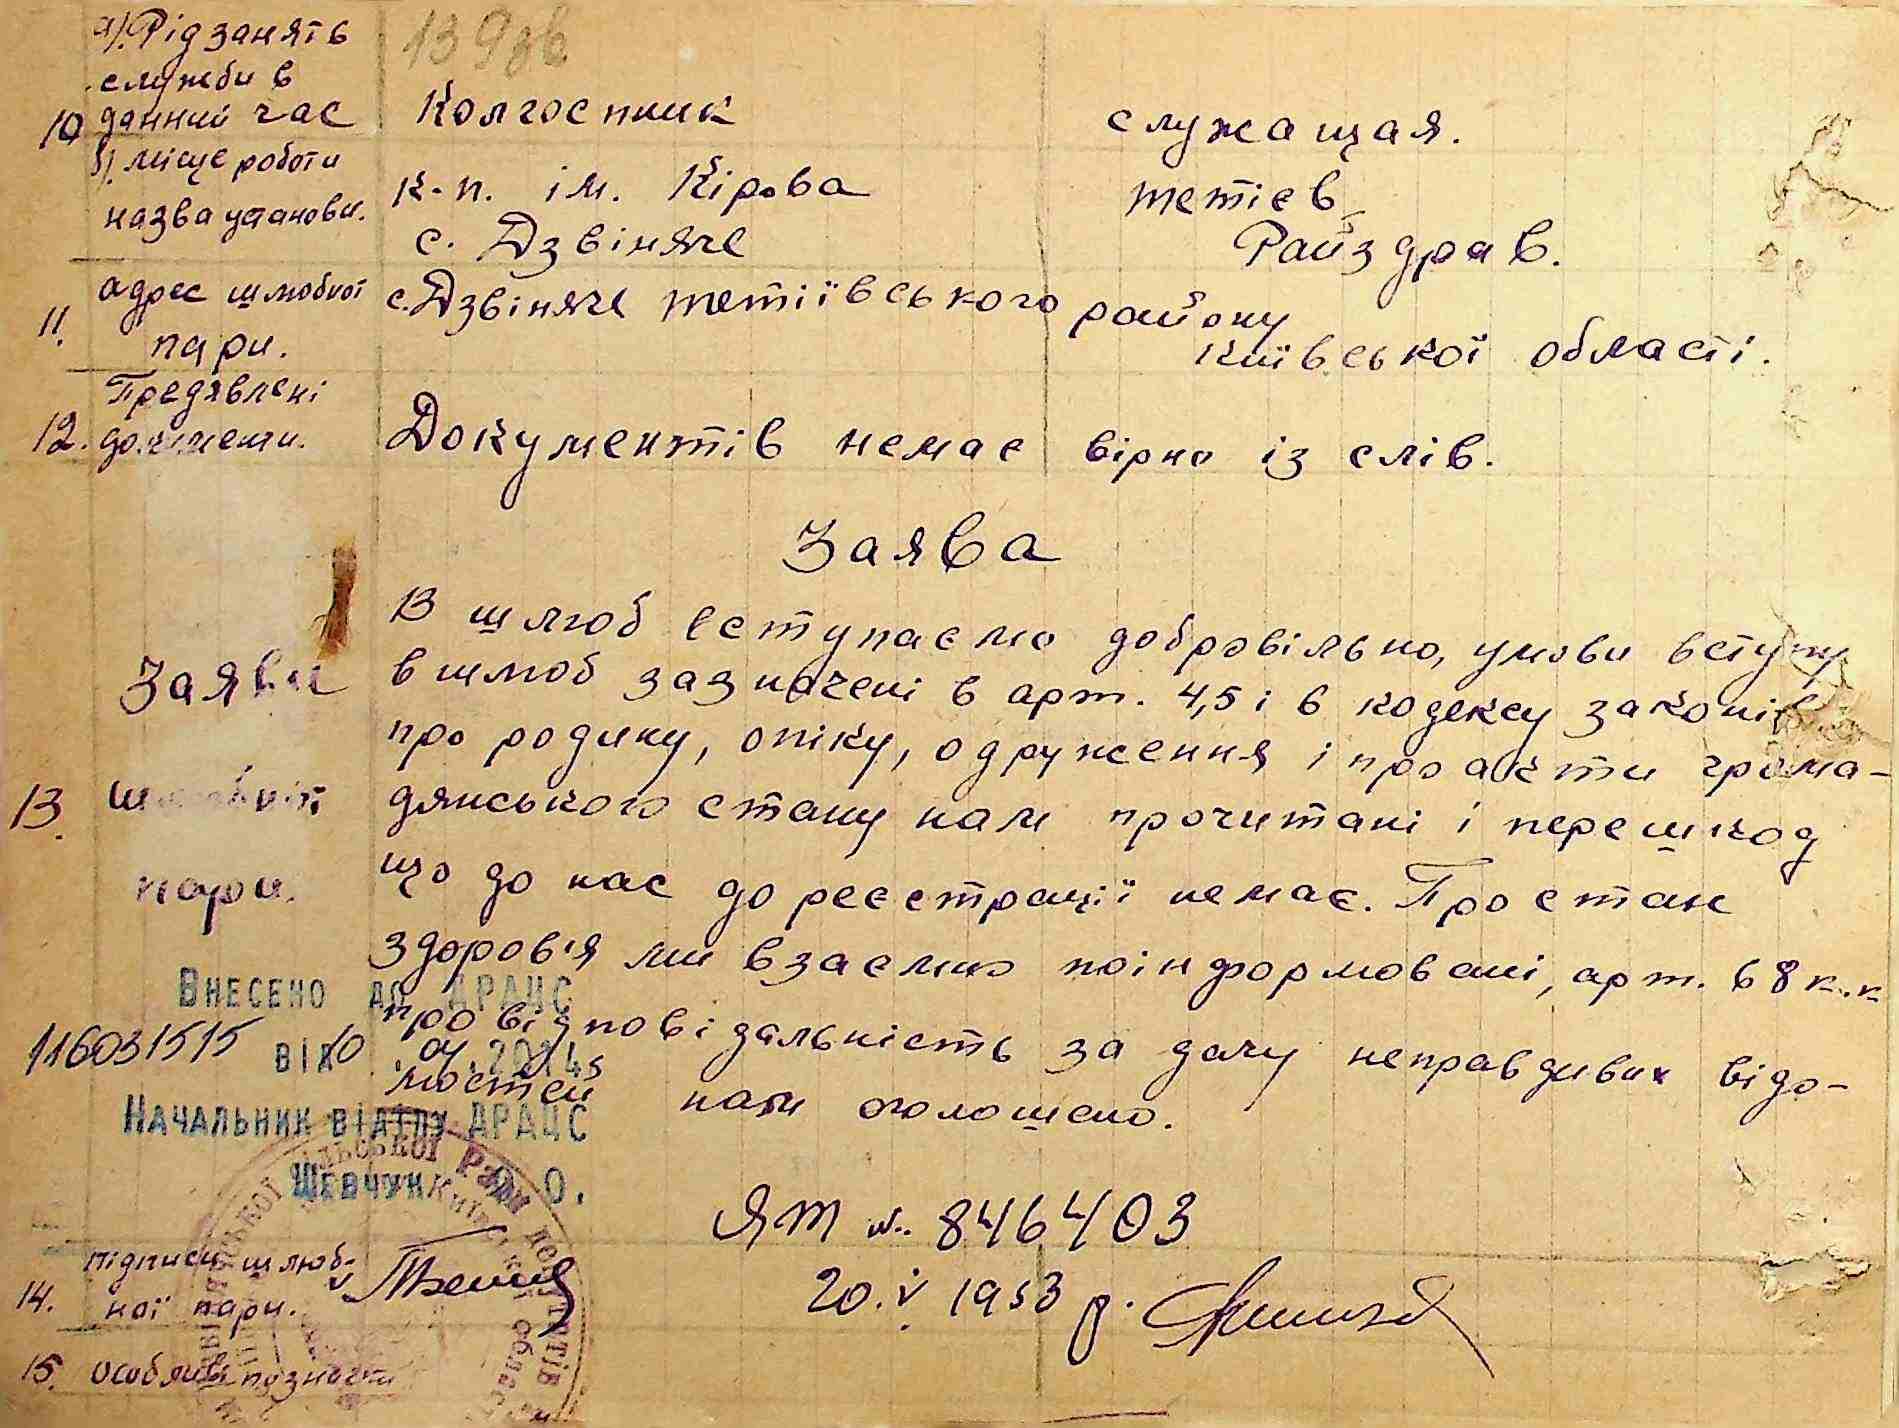 139зв
а). Рід занять
служби в
10 данний час Колгоспник служащая.
б). місце роботи
назва установи. к-п. ім. Кірова тетієв
с. Дзвіняче Райздрав.
адрес шлюбної с. Дзвіняче тетіївського району
11. пари. Київської області.
Предявлені
12. документи. Документів немає вірно із слів.
Заява
В шлюб вступаємо добровільно, умови вступу
Заяви в шлюб зазначені в арт. 4,5 і 6 кодексу законів
про родину, опіку, одруження і про акти грома-
13. шлюбної дянського стану нам прочитані і перешкод
що до нас до реєстрації немає. Про стан
пари.
здоров'я ми взаємно поінформовані, арт. 68 к.к
Внесено до ДРАЦС
про відповідальність за дачу неправдивих відо-
116031515 від 10.04.2014
мостей нам оголошено.
Начальник відділу ДРАЦС
Шевчук О.
ЯТ №. 846403
підписи шлюб-
14. ної пари. 20.V 1953 р.
15. особливі позначки